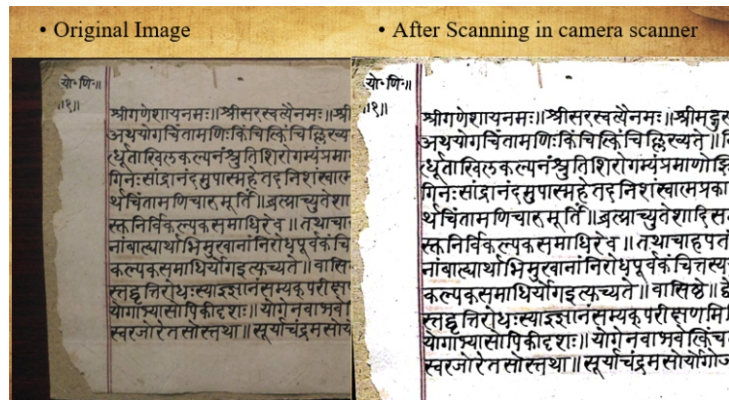 • Original Image
• After Scanning in camera scanner
यो॰णि॰॥
॥१॥
श्रीगणेशायनमः॥श्रीसरस्वत्यैनमः॥श्री
अथयोगचिंतामणिःकिंचित्किंचिल्लिख्य
र्धूताखिलकल्पनंश्रुतिशिरोगम्यंप्रमा
गिनःसांद्रानंदमुपास्महेतदनिशंस्वा
र्थचिंतामणिचारुमूर्ति॥ब्रह्माच्युतेशा
स्तनिर्विकल्पकसमाधिरेव॥तथाचा
नांबाह्यार्थाभिमुखानांनिरोधपूर्वकंचि
कल्पकसमाधिर्योगइत्युच्यते॥वासि
स्तद्वृत्तिरोधःस्याज्ज्ञानंसम्यक्परीक्ष
योगाभ्यासोपिकीदृशः॥योगेनवाभवे
स्वरजोरेतसोस्तथा॥सूर्याचंद्रमसोर्यो
यो॰णि॰॥
॥१॥
श्रीगणेशायनमः॥श्रीसरस्वत्यैनमः॥श्रीमद्गुरु
अथयोगचिंतामणिःकिंचित्किंचिल्लिख्यते॥
र्धूताखिलकल्पनंश्रुतिशिरोगम्यंप्रमाणोज्झि
गिनःसांद्रानंदमुपास्महेतदनिशंस्वात्मप्रका
र्थचिंतामणिचारुमूर्ति॥ब्रह्माच्युतेशादिसम
स्तनिर्विकल्पकसमाधिरेव॥तथाचाहपतं
नांबाह्यार्थाभिमुखानांनिरोधपूर्वकंचित्तस्य
कल्पकसमाधिर्योगइत्युच्यते॥वासिष्ठे॥द्वे
स्तद्वृत्तिरोधःस्याज्ज्ञानंसम्यक्परीक्षणमि
योगाभ्यासोपिकीदृशः॥योगेनवाभवेत्किंच
स्वरजोरेतसोस्तथा॥सूर्याचंद्रमसोर्योगोज